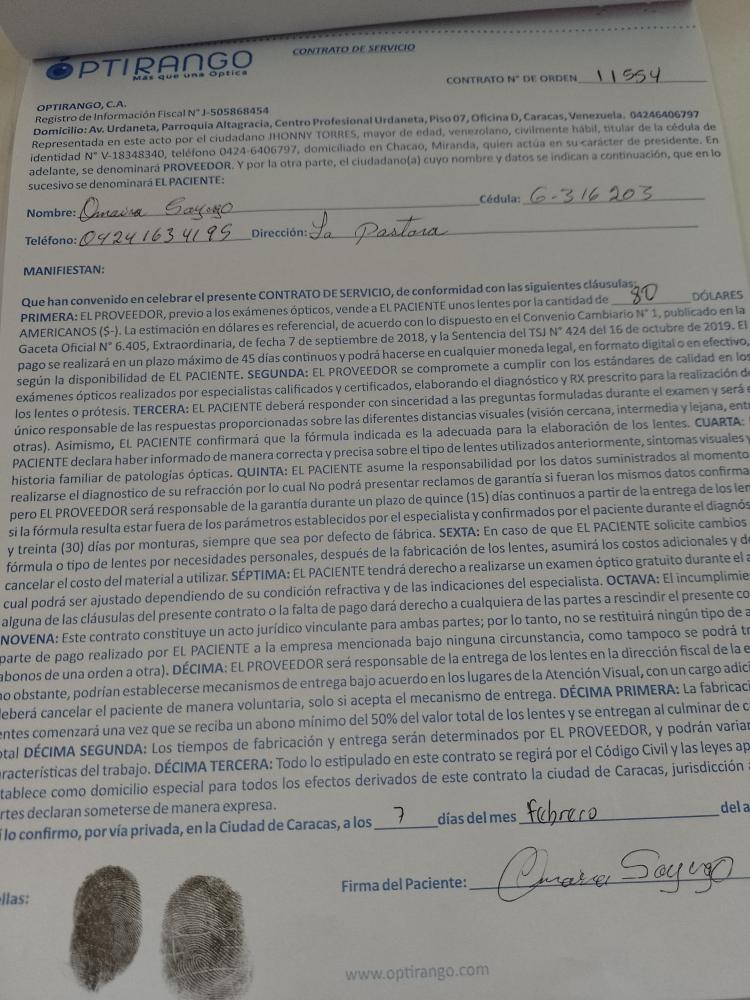 OPTIRANGO
Más que una Óptica
CONTRATO DE SERVICIO
CONTRATO N° DE ORDEN 11554
OPTIRANGO, C.A.
Registro de Información Fiscal N° J-505868454
Domicilio: Av. Urdaneta, Parroquia Altagracia, Centro Profesional Urdaneta, Piso 07, Oficina D, Caracas, Venezuela. 04246406797
Representada en este acto por el ciudadano JHONNY TORRES, mayor de edad, venezolano, civilmente hábil, titular de la cédula de
identidad N° V-18348340, teléfono 0424-6406797, domiciliado en Chacao, Miranda, quien actúa en su carácter de presidente. En
adelante, se denominará PROVEEDOR. Y por la otra parte, el ciudadano(a) cuyo nombre y datos se indican a continuación, que en lo
sucesivo se denominará EL PACIENTE:
Nombre: Omaira Sayago Cédula: 6-316203
Teléfono: 04241634195 Dirección: La Pastora
MANIFIESTAN:
Que han convenido en celebrar el presente CONTRATO DE SERVICIO, de conformidad con las siguientes cláusulas:
PRIMERA: EL PROVEEDOR, previo a los exámenes ópticos, vende a EL PACIENTE unos lentes por la cantidad de 80 DÓLARES
AMERICANOS ($-). La estimación en dólares es referencial, de acuerdo con lo dispuesto en el Convenio Cambiario N° 1, publicado en la
Gaceta Oficial N° 6.405, Extraordinaria, de fecha 7 de septiembre de 2018, y la Sentencia del TSJ N° 424 del 16 de octubre de 2019. El
pago se realizará en un plazo máximo de 45 días continuos y podrá hacerse en cualquier moneda legal, en formato digital o en efectivo,
según la disponibilidad de EL PACIENTE. SEGUNDA: EL PROVEEDOR se compromete a cumplir con los estándares de calidad en los
exámenes ópticos realizados por especialistas calificados y certificados, elaborando el diagnóstico y RX prescrito para la realización de
los lentes o prótesis. TERCERA: EL PACIENTE deberá responder con sinceridad a las preguntas formuladas durante el examen y será e
único responsable de las respuestas proporcionadas sobre las diferentes distancias visuales (visión cercana, intermedia y lejana, entr
otras). Asimismo, EL PACIENTE confirmará que la fórmula indicada es la adecuada para la elaboración de los lentes. CUARTA:
PACIENTE declara haber informado de manera correcta y precisa sobre el tipo de lentes utilizados anteriormente, síntomas visuales y
historia familiar de patologías ópticas. QUINTA: EL PACIENTE asume la responsabilidad por los datos suministrados al momento
realizarse el diagnostico de su refracción por lo cual No podrá presentar reclamos de garantía si fueran los mismos datos confirma
pero EL PROVEEDOR será responsable de la garantía durante un plazo de quince (15) días continuos a partir de la entrega de los len
si la fórmula resulta estar fuera de los parámetros establecidos por el especialista y confirmados por el paciente durante el diagnós
y treinta (30) días por monturas, siempre que sea por defecto de fábrica. SEXTA: En caso de que EL PACIENTE solicite cambios
fórmula o tipo de lentes por necesidades personales, después de la fabricación de los lentes, asumirá los costos adicionales y de
cancelar el costo del material a utilizar. SÉPTIMA: EL PACIENTE tendrá derecho a realizarse un examen óptico gratuito durante el a
cual podrá ser ajustado dependiendo de su condición refractiva y de las indicaciones del especialista. OCTAVA: El incumplimie
alguna de las cláusulas del presente contrato o la falta de pago dará derecho a cualquiera de las partes a rescindir el presente co
NOVENA: Este contrato constituye un acto jurídico vinculante para ambas partes; por lo tanto, no se restituirá ningún tipo de a
parte de pago realizado por EL PACIENTE a la empresa mencionada bajo ninguna circunstancia, como tampoco se podrá tr
abonos de una orden a otra). DÉCIMA: EL PROVEEDOR será responsable de la entrega de los lentes en la dirección fiscal de la e
no obstante, podrían establecerse mecanismos de entrega bajo acuerdo en los lugares de la Atención Visual, con un cargo adici
deberá cancelar el paciente de manera voluntaria, solo si acepta el mecanismo de entrega. DÉCIMA PRIMERA: La fabricaci
entes comenzará una vez que se reciba un abono mínimo del 50% del valor total de los lentes y se entregan al culminar de c
otal DÉCIMA SEGUNDA: Los tiempos de fabricación y entrega serán determinados por EL PROVEEDOR, y podrán varia
aracterísticas del trabajo. DÉCIMA TERCERA: Todo lo estipulado en este contrato se regirá por el Código Civil y las leyes ap
tablece como domicilio especial para todos los efectos derivados de este contrato la ciudad de Caracas, jurisdicción a
rtes declaran someterse de manera expresa.
lo confirmo, por vía privada, en la Ciudad de Caracas, a los 7 días del mes febrero del a
ellas:
Firma del Paciente: Omaira Sayago
www.optirango.com